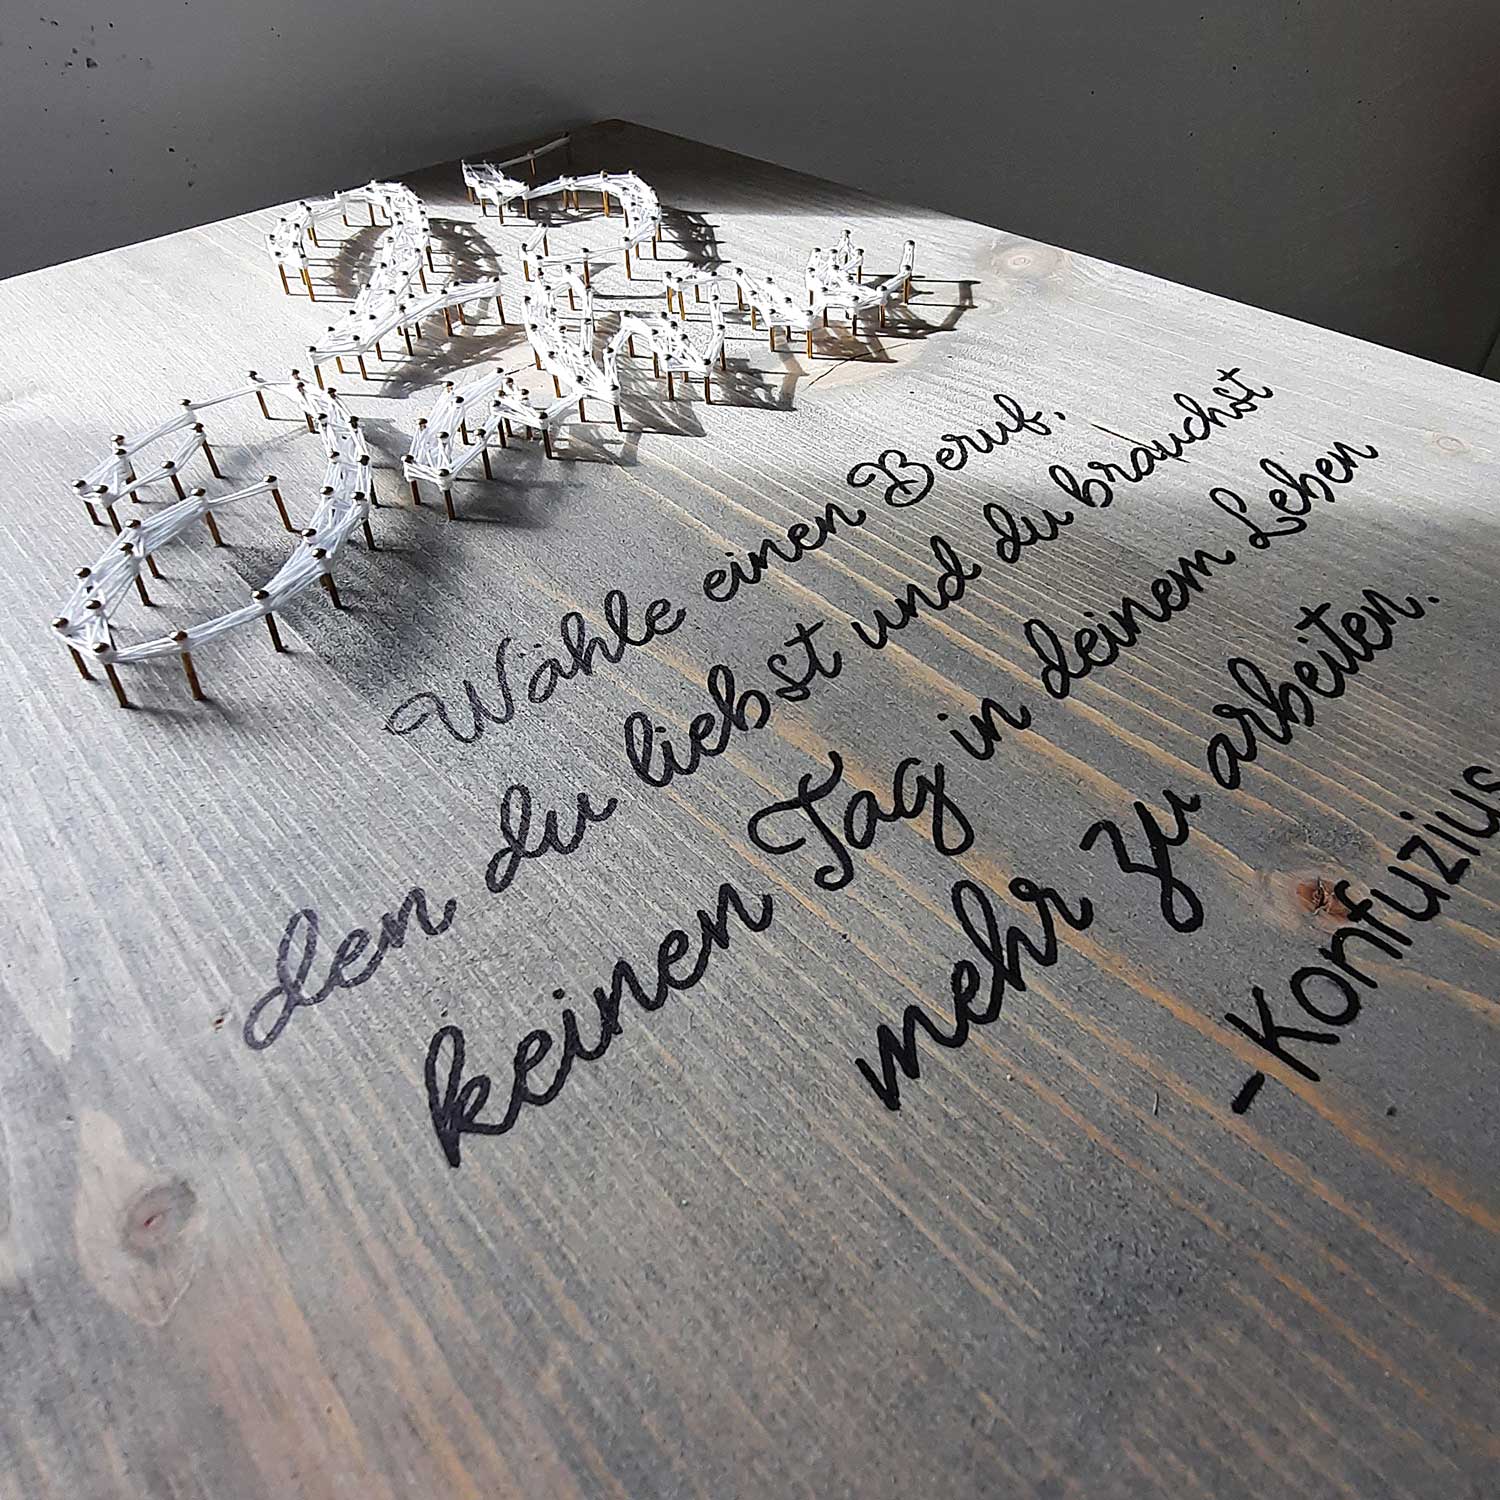 Wähle einen Beruf,
den du liebst und du brauchst
keinen Tag in deinem Leben
mehr zu arbeiten.
-Konfuzius